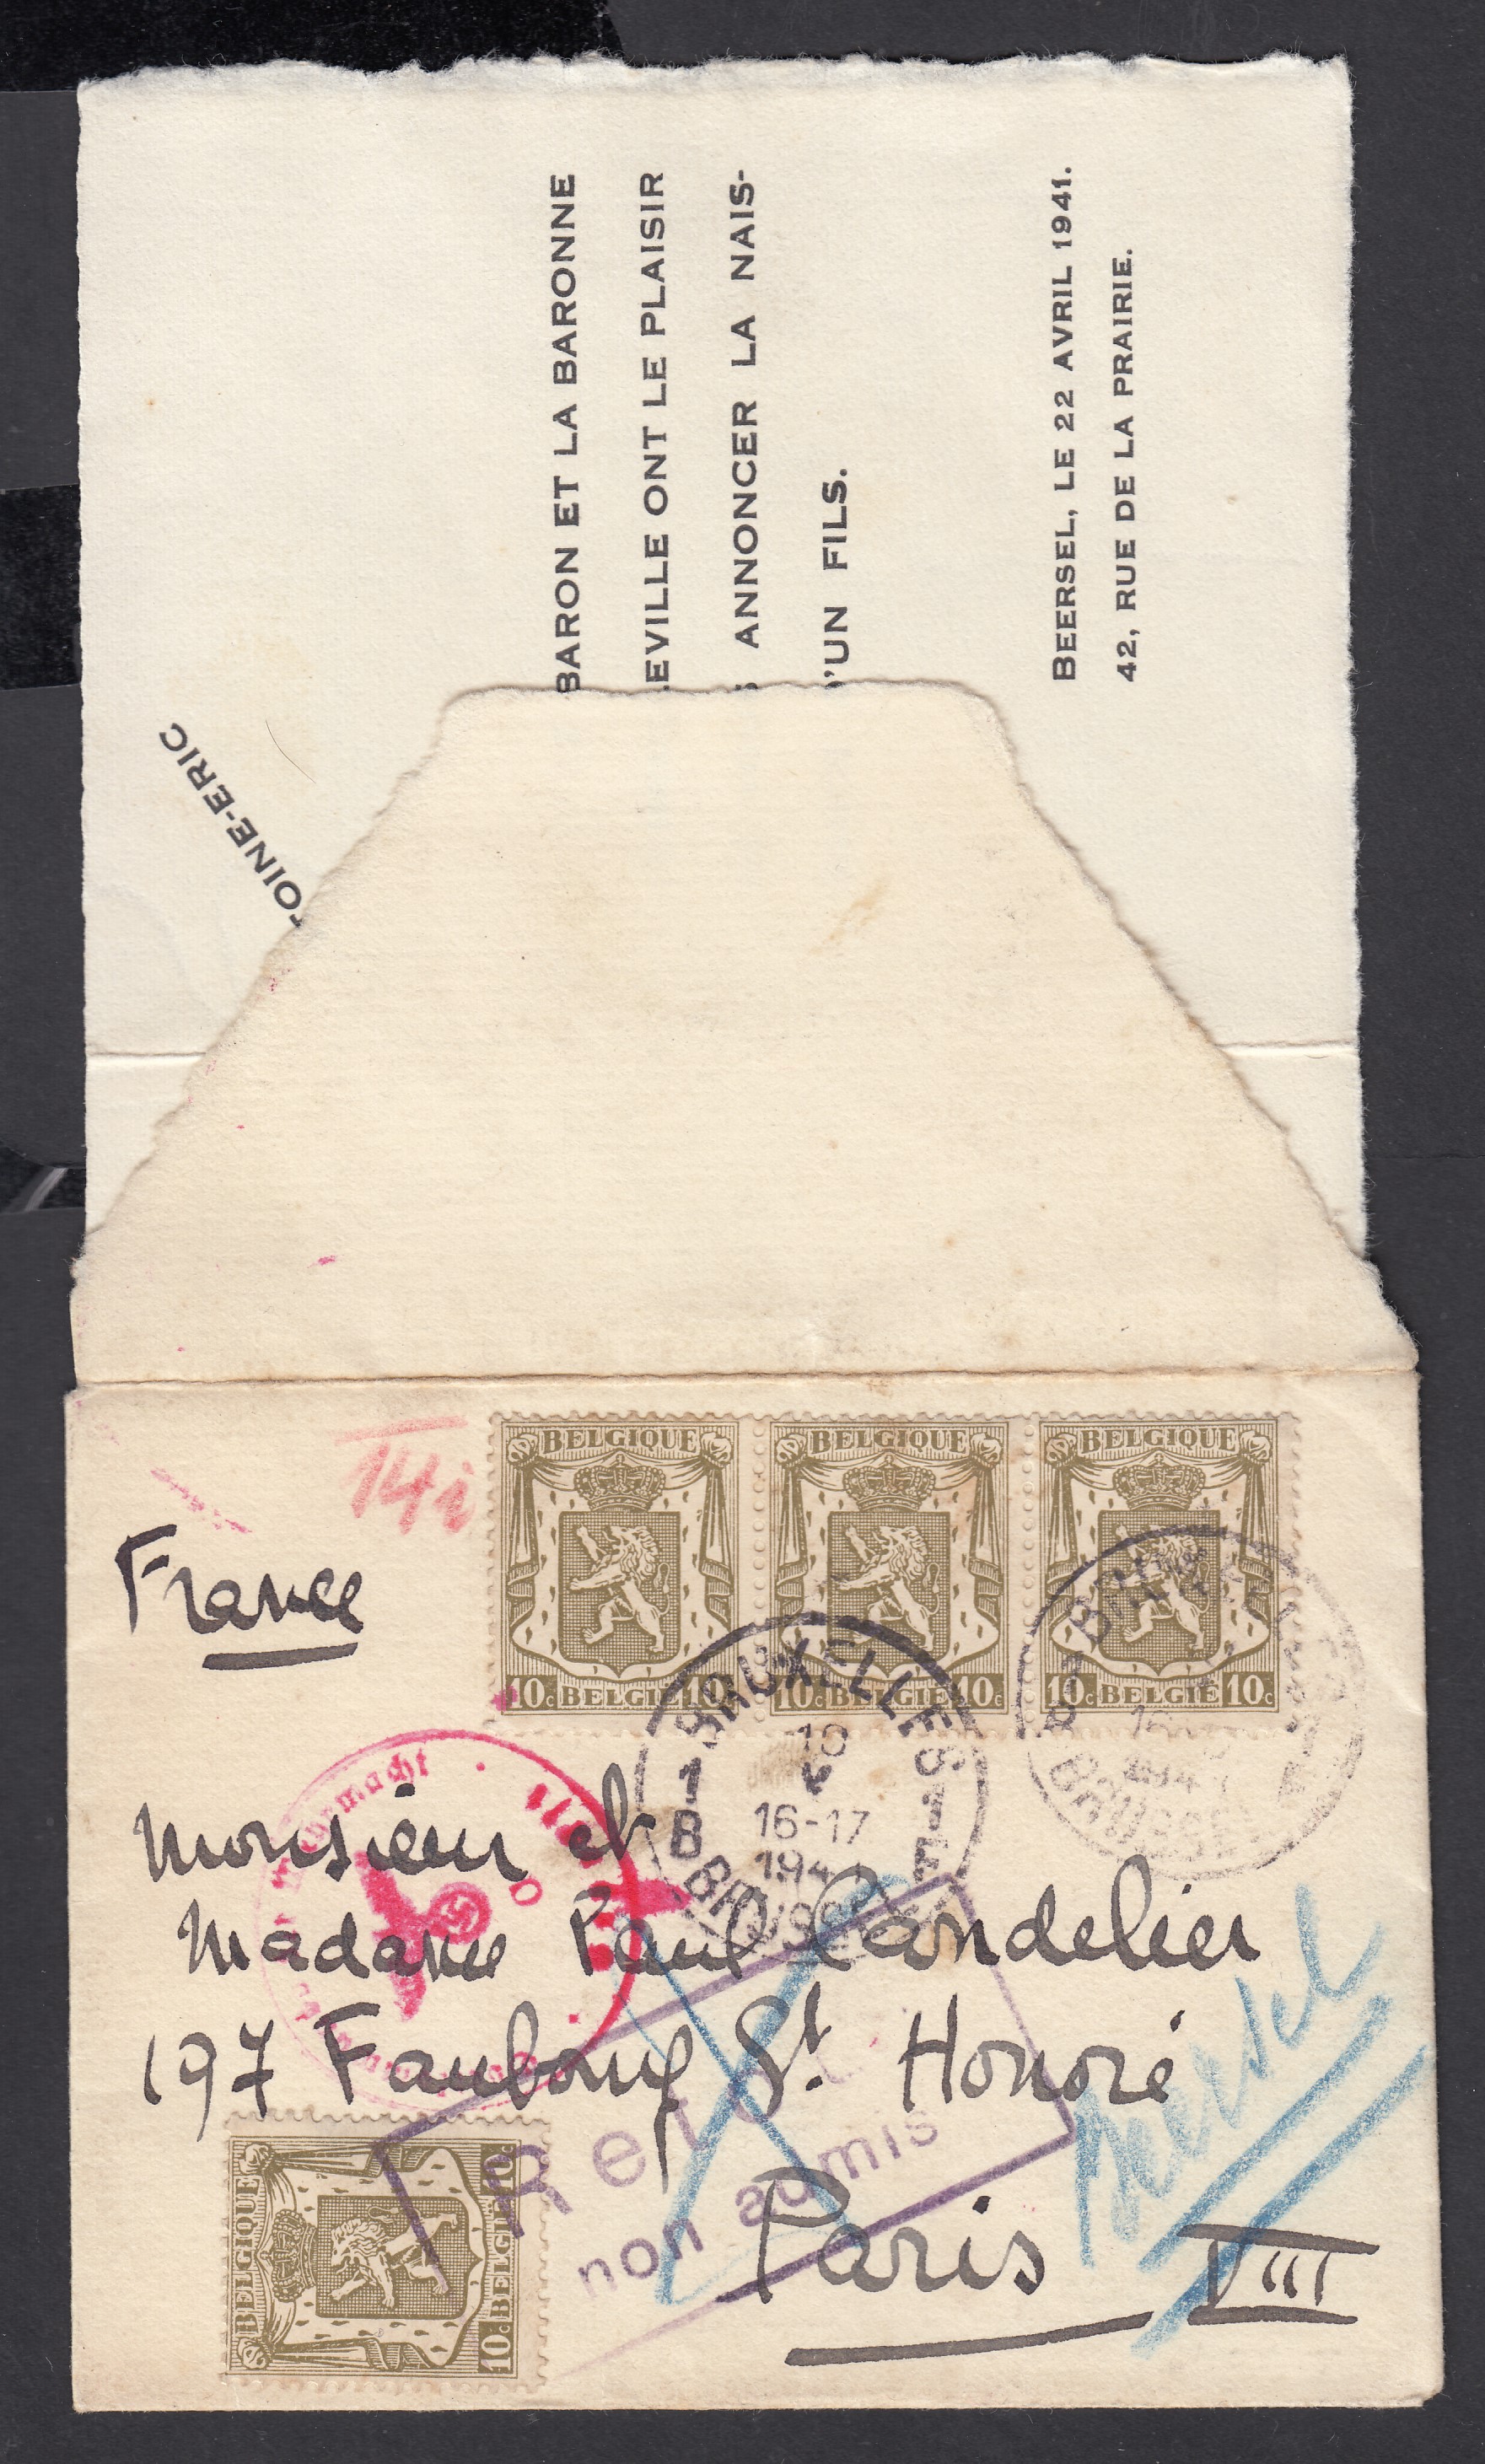 BARON ET LA BARONNE
EVILLE ONT LE PLAISIR
ANNONCER LA NAIS-
'UN FILS.
BEERSEL, LE 22 AVRIL 1941.
42, RUE DE LA PRAIRIE.
OINE-ERIC
14i
France
BELGIQUE
10c BELGIE 10c
BELGIQUE
10c BELGIE 10c
BELGIQUE
10c BELGIË 10c
BRUXELLES
1
B
10
V
16-17
194
BRUSSEL
BRUSSEL
Monsieur et
Madame Paul Candelier
197 Faubourg St. Honoré
Paris VIII
Beersel
non admis
BELGIQUE
10c BELGIE 10c